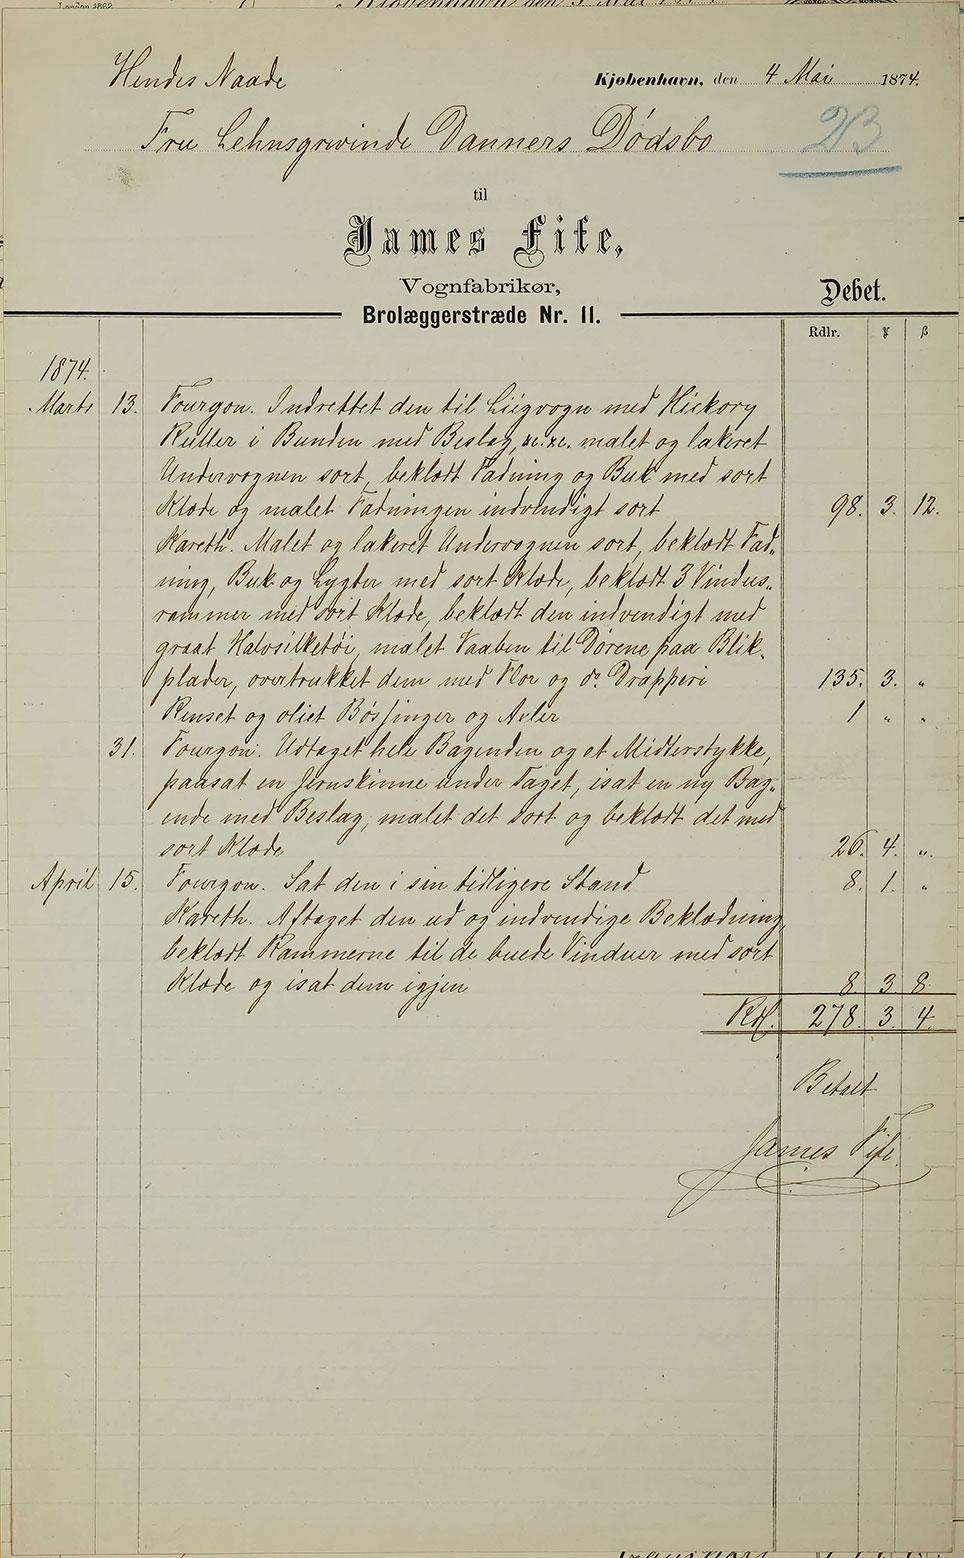 Hendes Naade
Kjøbenhavn, den 4 Mai 1874.
Fru Lehnsgrevinde Danners Dødsbo
23
til
James Fife,
Vognfabrikør,
Debet.
Brolæggerstræde Nr. 11.
Rdlr. ꝟ β
1874.
Marts 13. Fourgon. Indrettet den til Liigvogn med Hickory
Ruller i Bunden med Beslag, &c. &c. malet og lakeret
Undervognen sort, beklædt Fadning og Buk med sort
Klæde og malet Fadningen indvendigt sort 98. 3. 12.
Kareth. Malet og lakeret Undervognen sort, beklædt Fad„
ning, Buk og Lygter med sort Klæde, beklædt 3 Vindus„
rammer med sort Klæde, beklædt den indvendigt med
graat Halvsilketøi, malet Vaaben til Dørene paa Blik„
plader, overtrukket dem med Flor og do Drapperi 135. 3. „
Renset og oliet Bøsfinger og Axler 1 „ „
31. Fourgon. Udtaget hele Bagenden og et Midterstykke,
paasat en Jernskinne under Taget, isat en ny Bag„
ende med Beslag, malet det sort og beklædt det med
sort Klæde 26. 4. „
April 15. Fourgon. Sat den i sin tidligere Stand 8. 1. „
Kareth. Aftaget den ud og indvendige Beklædning,
beklædt Rammerne til de buede Vinduer med sort
Klæde og isat dem igjen 8. 3 8
Rdl. 278. 3. 4.
Betalt
James Fife.